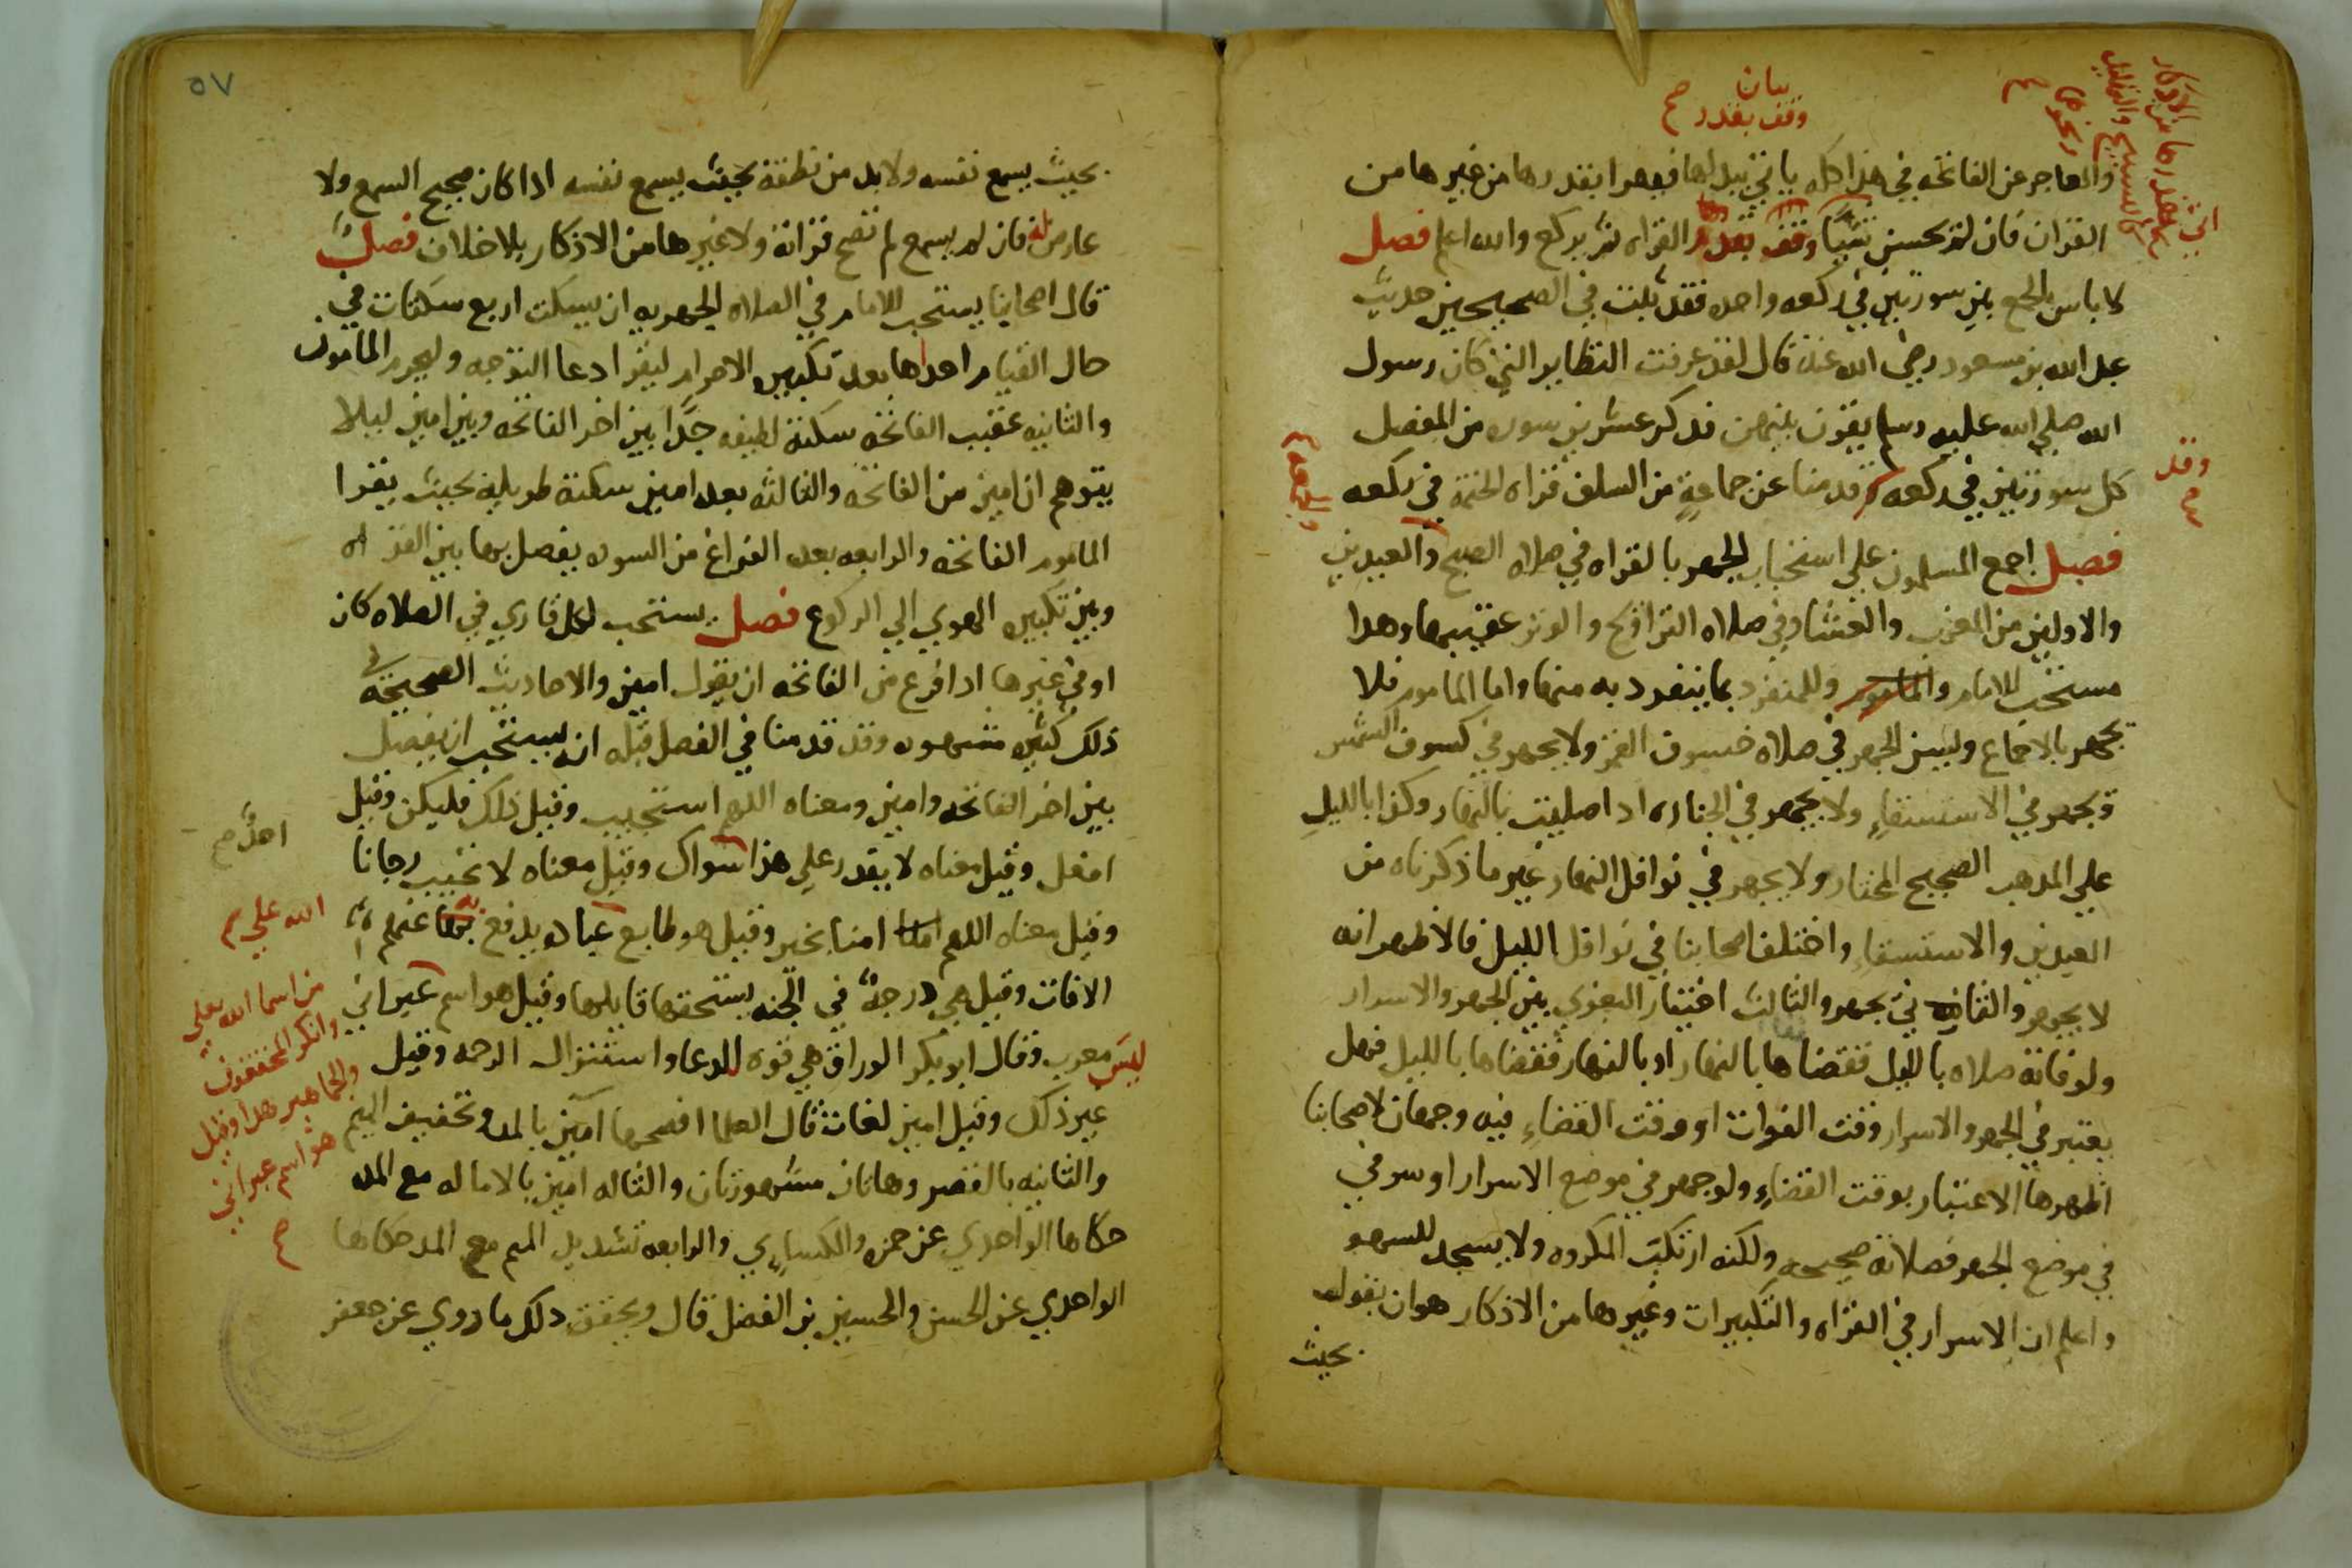 بيان
وقف بقدر صح
والعاجز عن الفاتحه في هذا كله ياتي ببدلها فيقرا بقدرها من غيرها من
القران فان لم يحسن شيئًا وقف بقدر القراه ثم يركع والله اعلم فصل
اتى بقدرها من الاذكار
كالتسبيح والتهليل
ونحوها
صح
لا باس بالجمع بين سورتين في ركعه واحده فقد ثبت في الصحيحين حديث
عبد الله بن مسعود رضي الله عنه قال لقد عرفت النظاير التي كان رسول
الله صلي الله عليه وسلم يقرن بينهن فذكر عشرين سوره من المفصل
كل سورتين في ركعه وقد قدمنا عن جماعةٍ من السلف قراه الختمة في ركعه
وقد
صح
فصل اجمع المسلمون علي استحباب الجهر بالقراه في صلاه الصبح والعيدين
والجمعه صح
والاولين من المغرب والعشا وفي صلاه التراويح والوتر عقيبها وهذا
مستحب للامام والماموم وللمنفرد بما ينفرد به منها واما الماموم فلا
يجهر بالاجماع ويسن الجهر في صلاه خسوف القمر ولا يجهر في كسوف الشمس
ويجهر في الاستسقاءِ ولا يجهر في الجنازه اذا صليت بالنهار وكذا بالليلِ
علي المذهب الصحيح المختار ولا يجهر في نوافل النهار غير ما ذكرناه من
العيدين والاستسقاءِ واختلف اصحابنا في نوافل الليل فالاظهر انه
لا يجهر والثاني يجهر والثالث اختيار البغوي بين الجهر والاسرار
ولو فاتة صلاه بالليل فقضاها بالنهار او بالنهار فقضاها بالليل فهل
يعتبر في الجهر والاسرار وقت الفوات او وقت القضاءِ فيه وجهان لاصحابنا
اظهرها الاعتبار بوقت القضاءِ ولو جهر في موضع الاسرار او سر في
في موضع الجهر فصلاته صحيحه ولكنه ارتكب المكروه ولا يسجد للسهو
واعلم ان الاسرار في القراه والتكبيرات وغيرها من الاذكار هو ان يقوله
بحيث
٥٧
بحيث يسمع نفسه ولا بد من نطقه بحيث يسمع نفسه اذا كان صحيح السمع ولا
عارض له فان لم يسمع لم تصح قراته ولا غيرها من الاذكار بلا خلاف فصل
قال اصحابنا يستحب للامام في الصلاه الجهريه ان يسكت اربع سكتات في
حال القيام احداها بعد تكبيره الاحرام ليقرا دعا التوجه وليحرم المامون
والثانيه عقيب الفاتحه سكتة لطيفه جدًّا بين اخر الفاتحه وبين امين ليلا
يتوهم ان امين من الفاتحه والثالثه بعد امين سكتة طويلة بحيث يقرا
الماموم الفاتحه والرابعه بعد الفراغ من السوره يفصل بها بين القراه
وبين تكبيره الهوي الي الركوع فصل يستحب لكل قاري في الصلاه كان
او في غيرها اذا فرغ من الفاتحه ان يقول امين والاحاديث الصحيحه في
ذلك كثيره مشهوره وقد قدمنا في الفصل قبله انه يستحب ان يفصل
بين اخر الفاتحه وامين ومعناه اللهم استجيب وقيل ذلك فليكن وقيل
افعل وقيل معناه لا يقدر علي هذا سواك وقيل معناه لا تخيب رجانا
احدٌ صح
وقيل معناه اللهم امنا بخير وقيل هو طابع عباده يدفع به عنهم
الله علي صح
الافات وقيل هي درجةٌ في الجنه يستحقها قايلها وقيل هو اسم عبراني
من اسما الله تعلي
وانكر المحققون
والجماهير هذا وقيل
هو اسم عبراني
صح
ليس معرب وقال ابو بكر الوراق هي قوه للدعا واستنزال الرحمه وقيل
غير ذلك وقيل امين لغات قال العلما افصحها آمين بالمد وتخفيف الميم
والثانيه بالقصر وهاتان مشهورتان والثاله امين بالاماله مع المد
حكاها الواحدي عن حمزه والكساءِي والرابعه تشديد الميم مع المد حكاها
الواحدي عن الحسن والحسين بن الفضل قال ويحقق ذلك ما روي عن جعفر